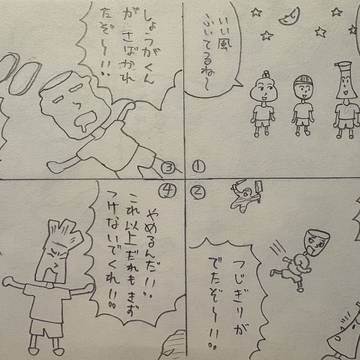 いい風
ふいてるね〜
①
②
つじぎりが
でたぞ〜!!
しょうがくん
が さばかれ
たぞ〜!!
③
④
やめるんだ!!
これ以上だれもきず
つけないでくれ!!